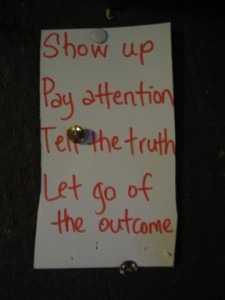 Show up
Pay attention
Tell the truth
Let go of
the outcome